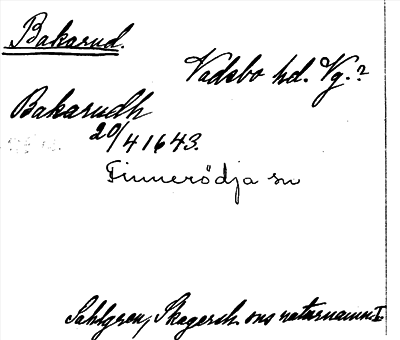 Bakarud.
Vadsbo hd. Vg.?
Bakarudh
20/4 1643.
Finnerödja sn
Sahlgren, Skagersh. ons naturnamn I